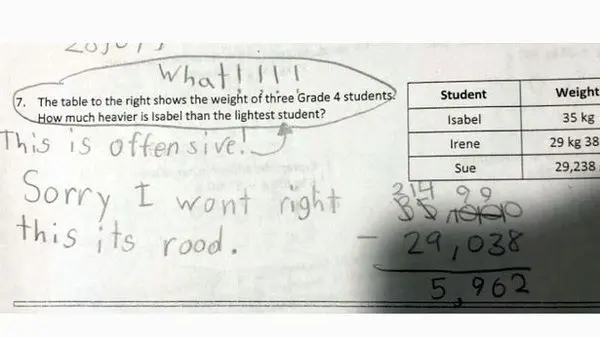 What!!!!
7. The table to the right shows the weight of three Grade 4 students.
How much heavier is Isabel than the lightest student?
This is offensive!
Sorry I wont right
this its rood.
Student Weight
Isabel 35 kg
Irene 29 kg 38
Sue 29,238
2 14 9 9
- 29,038
5,962